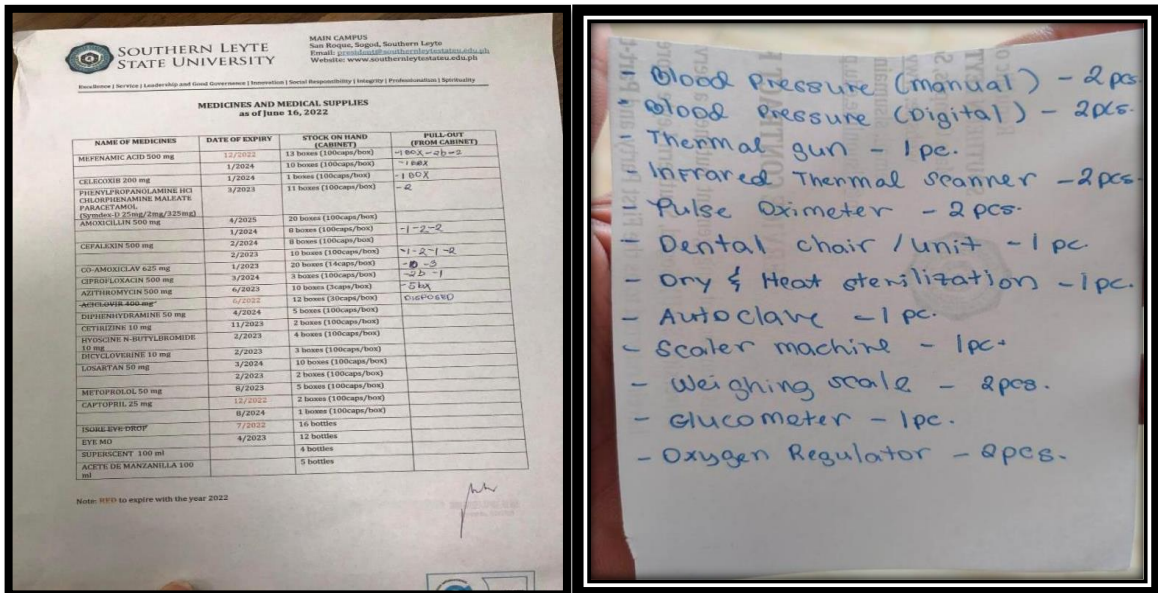 SOUTHERN LEYTE
STATE UNIVERSITY
MAIN CAMPUS
San Roque, Sogod, Southern Leyte
Email: president@southernleytestateu.edu.ph
Website: www.southernleytestateu.edu.ph
Excellence | Service | Leadership and Good Governance | Innovation | Social Responsibility | Integrity | Professionalism | Spirituality
MEDICINES AND MEDICAL SUPPLIES
as of June 16, 2022
NAME OF MEDICINES DATE OF EXPIRY STOCK ON HAND (CABINET) PULL-OUT (FROM CABINET)
MEFENAMIC ACID 500 mg 12/2022 13 boxes (100caps/box) -1 BOX -2b -2
1/2024 10 boxes (100caps/box) -1 box
CELECOXIB 200 mg 1/2024 1 boxes (100caps/box) -1 BOX
PHENYLPROPANOLAMINE HCl 3/2023 11 boxes (100caps/box) -2
CHLORPHENAMINE MALEATE
PARACETAMOL
(Symdex-D 25mg/2mg/325mg)
AMOXICILLIN 500 mg 4/2025 20 boxes (100caps/box)
1/2024 8 boxes (100caps/box) -1-2-2
CEFALEXIN 500 mg 2/2024 8 boxes (100caps/box)
2/2023 10 boxes (100caps/box) -1-2-1-2
CO-AMOXICLAV 625 mg 1/2023 20 boxes (14caps/box) -3
CIPROFLOXACIN 500 mg 3/2024 3 boxes (100caps/box) -2b -1
AZITHROMYCIN 500 mg 6/2023 10 boxes (3caps/box) -5bx
ACICLOVIR 400 mg 6/2022 12 boxes (30caps/box) DISPOSED
DIPHENHYDRAMINE 50 mg 4/2024 5 boxes (100caps/box)
CETIRIZINE 10 mg 11/2023 2 boxes (100caps/box)
HYOSCINE N-BUTYLBROMIDE 2/2023 4 boxes (100caps/box)
10 mg
DICYCLOVERINE 10 mg 2/2023 3 boxes (100caps/box)
LOSARTAN 50 mg 3/2024 10 boxes (100caps/box)
2/2023 2 boxes (100caps/box)
METOPROLOL 50 mg 8/2023 5 boxes (100caps/box)
CAPTOPRIL 25 mg 12/2022 2 boxes (100caps/box)
8/2024 1 boxes (100caps/box)
ISORE EYE DROP 7/2022 16 bottles
EYE MO 4/2023 12 bottles
SUPERSCENT 100 ml 4 bottles
ACETE DE MANZANILLA 100 5 bottles
ml
Note: RED to expire with the year 2022
- Blood Pressure (manual) - 2 pcs.
- Blood Pressure (Digital) - 2pcs.
- Thermal gun - 1 pc.
- Infrared Thermal Scanner - 2 pcs.
- Pulse Oximeter - 2 pcs.
- Dental chair / unit - 1 pc.
- Dry & Heat sterilization - 1 pc.
- Autoclave - 1 pc.
- Scaler machine - 1pc.
- Weighing scale - 2pcs.
- Glucometer - 1pc.
- Oxygen Regulator - 2pcs.